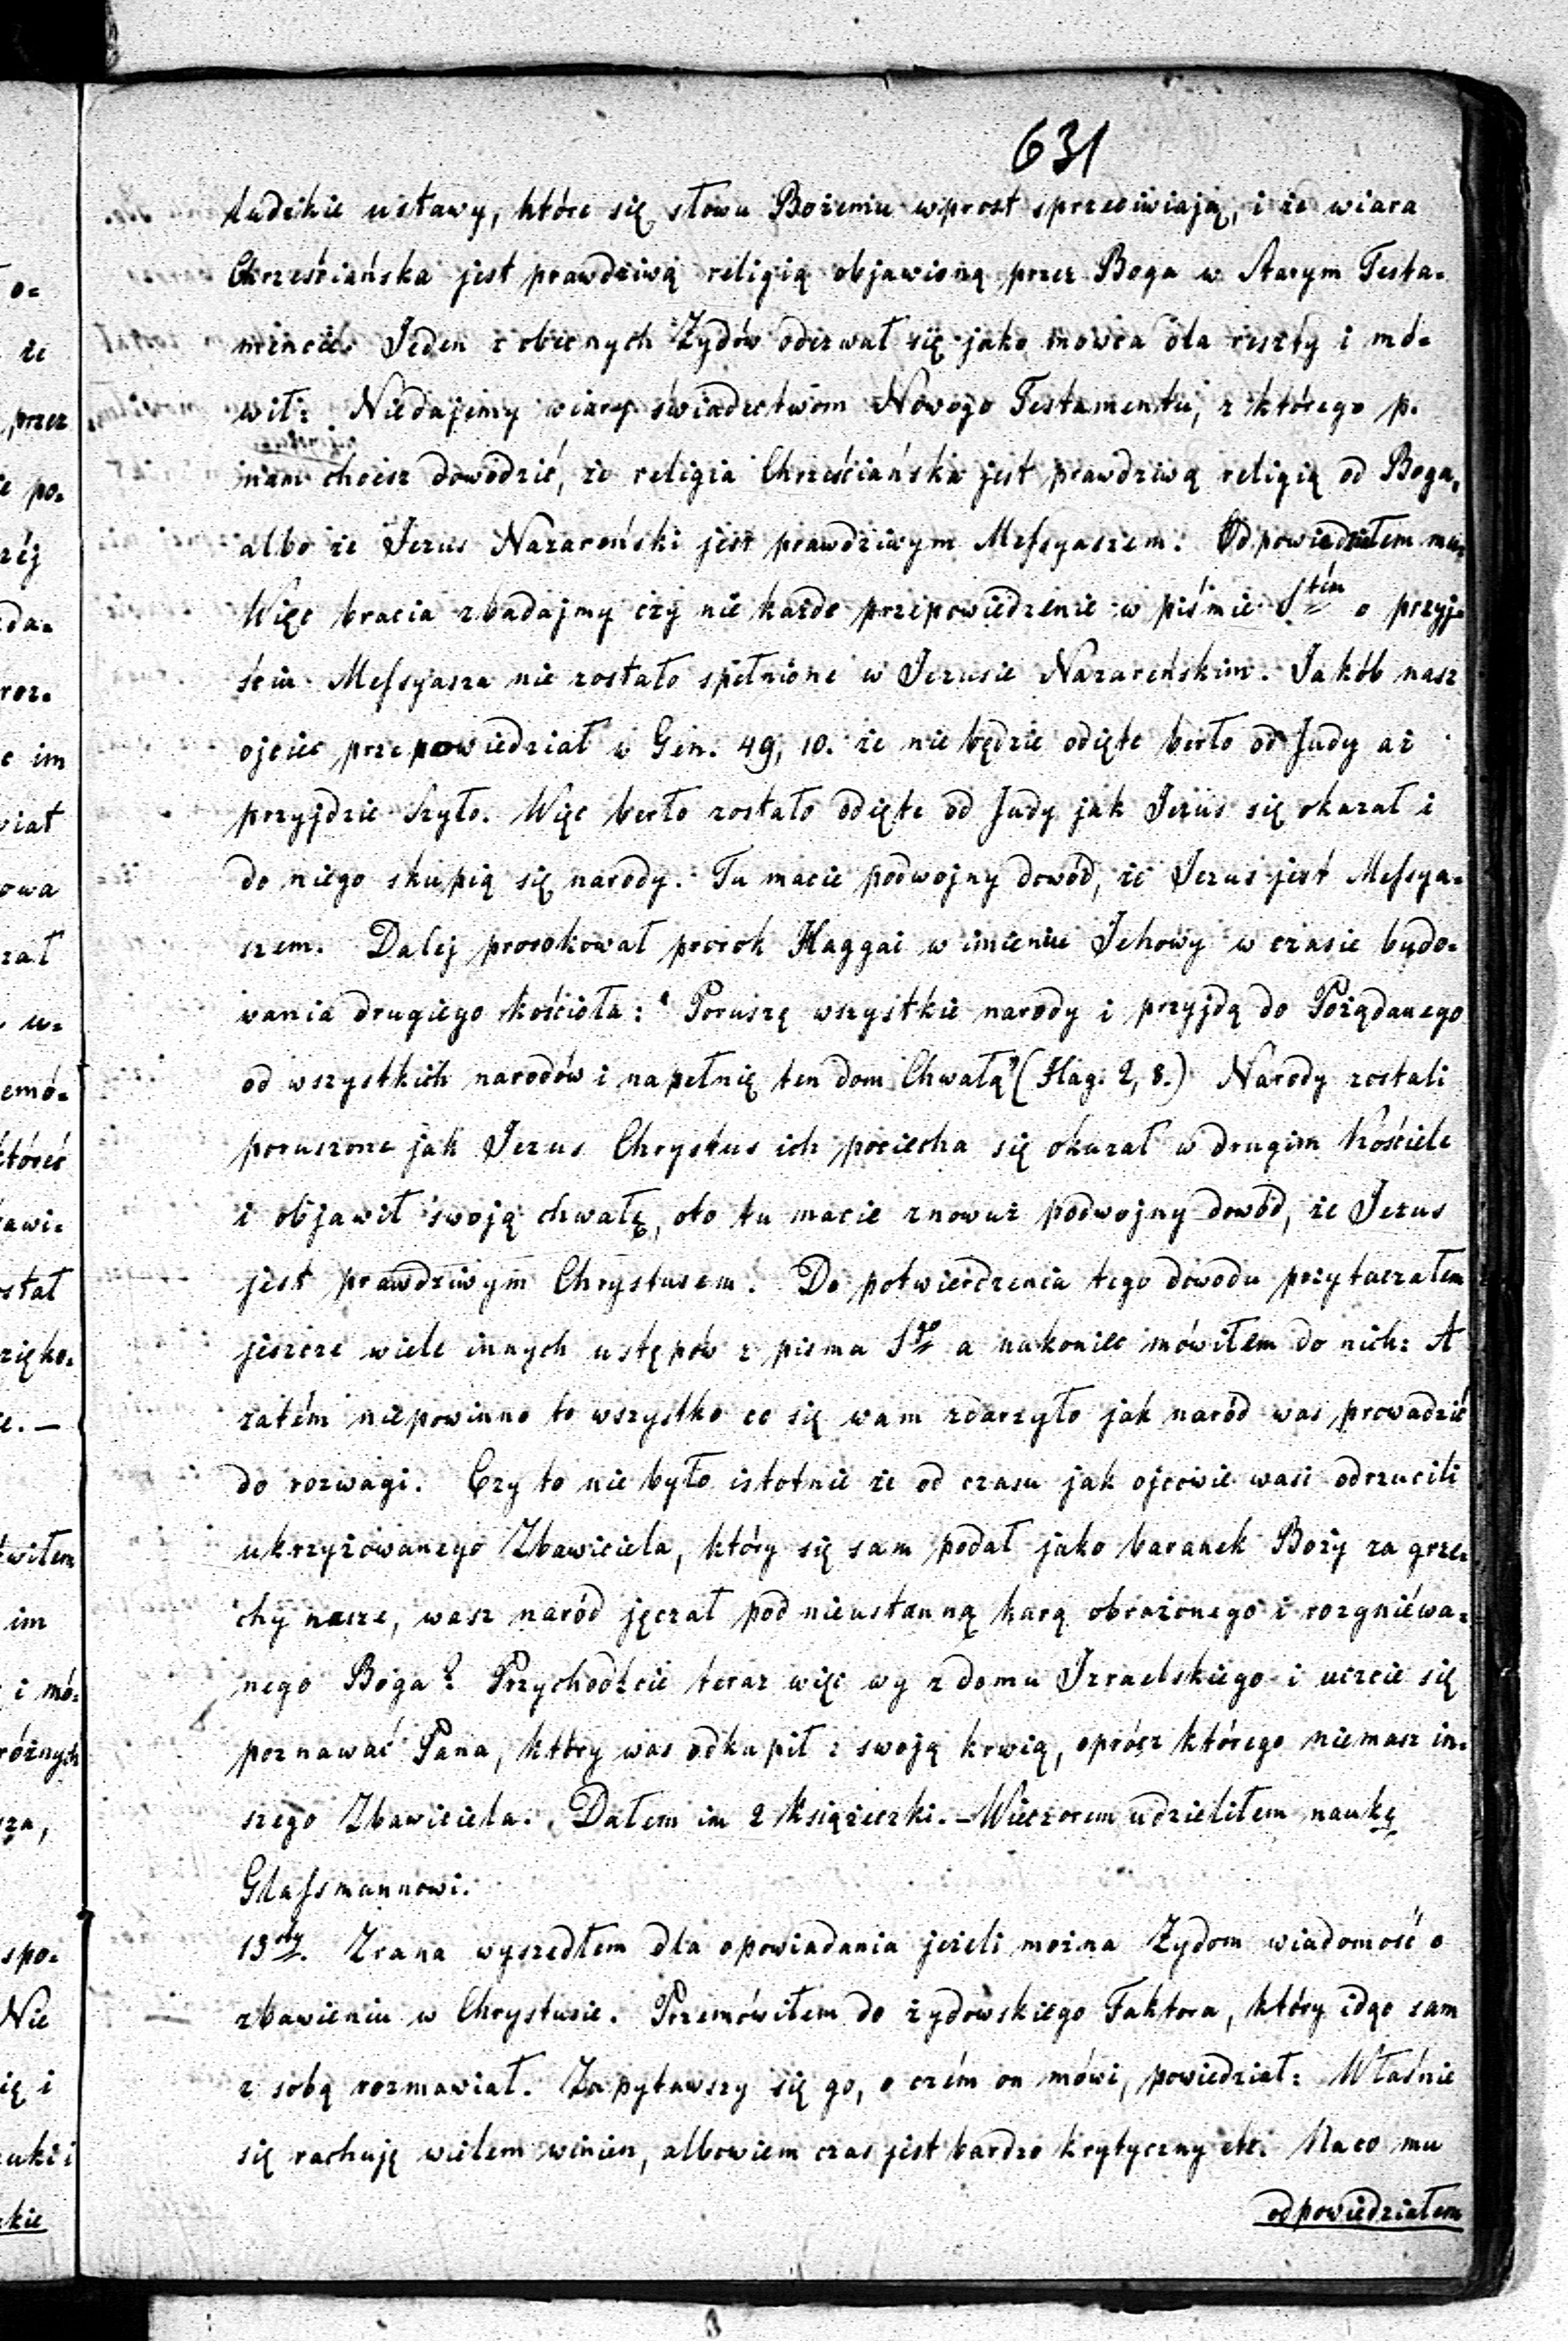 631
ludzkie ustawy, które się słowu Bożemu wprost sprzeciwiają, i że wiara
Chrześciańska jest prawdziwą religią objawioną przez Boga w Starym Testa-
mencie. Jeden z obecnych Żydów odezwał się jako mowca dla reszty i mó-
wił: Niedajemy wiary świadectwom Nowego Testamentu, z którego p.
nam chcesz dowodzić, że religia Chrześciańska jest prawdziwą religią od Boga,
albo że Jezus Nazareński jest prawdziwym Messyaszem. Odpowiedziałem mu,
Więc bracia zbadajmy czy nie każde przepowiedzenie w piśmie Stém o przyj-
ściu Messyasza nie zostało spełnione w Jezusie Nazareńskim. Jakób nasz
ojciec przepowiedział w Gen. 49, 10. że nie będzie odięte berło od Judy aż
przyjdzie Szyło. Więc berło zostało odięte od Judy jak Jezus się okazał i
do niego skupią się narody. Tu macie podwojny dowód, że Jezus jest Messya-
szem. Dalej prorokował prorok Haggai w imieniu Jehowy w czasie budo-
wania drugiego kościoła: "Poruszę wszystkie narody i przyjdą do Pożądanego
od wszystkich narodów i napełnię ten dom Chwałą" (Hag. 2, 8.) Narody zostali
poruszone jak Jezus Chrystus ich pociecha się okazał w drugim Kościele
i objawił swoją chwałę, oto tu macie znowuż podwojny dowód, że Jezus
jest prawdziwym Chrystusem. Do potwierdzenia tego dowodu przytaczałem
jeszcze wiele innych ustępów z pisma Sgo a nakoniec mówiłem do nich: A
zatém niepowinno to wszystko co się wam zdarzyło jak naród was prowadzić
do rozwagi. Czy to nie było istotnie że od czasu jak ojcowie wasi odrzucili
ukrzyżowanego Zbawiciela, który się sam podał jako baranek Boży za grze-
chy nasze, wasz naród jęczał pod nieustanną karą obrażonego i rozgniéwa-
nego Boga? Przychodźcie teraz więc wy z domu Izraelskiego i uczcie się
poznawać Pana, który was odkupił z swoją krwią, oprócz którego niemasz in-
szego Zbawiciela. Dałem im 2 książeczki. – Wieczorem udzieliłem naukę
Glassmannowi.
13sty. Zrana wyszedłem dla opowiadania jeżeli można Żydom wiadomość o
zbawieniu w Chrystusie. Przemówiłem do żydowskiego Faktora, który idąc sam
z sobą rozmawiał. Zapytawszy się go, o czém on mówi, powiedział: Właśnie
się rachuję wielem winien, albowiem czas jest bardzo krytyczny etc. Na co mu
odpowiedziałem
o-
że
przez
po-
im
owa
u-
emó-
im
i mó-
różnych
spo-
Nie